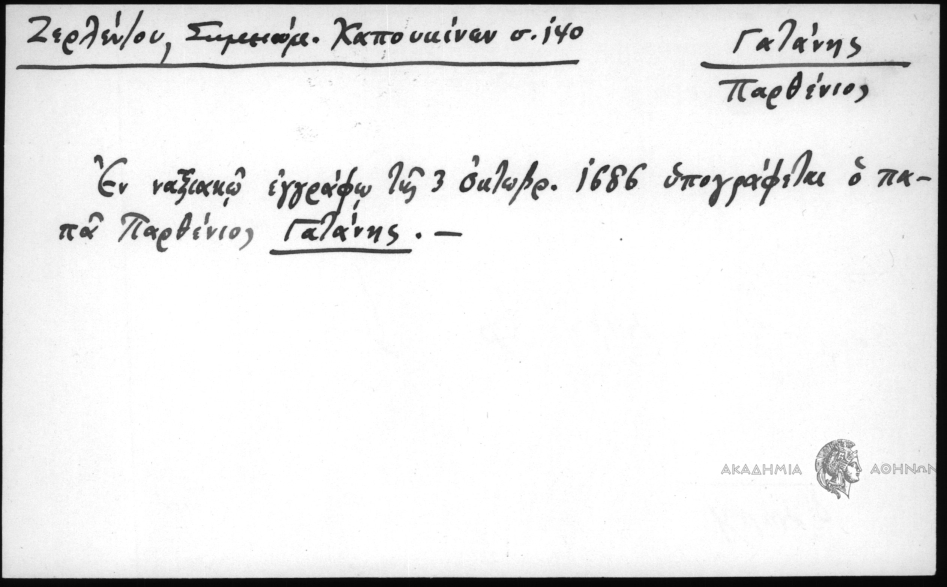 Ζερλέντου, Σημειώμ. Καπουκίνων σ. 140
Γατάνης
Παρθένιος
Ἐν ναξιακῷ ἐγγράφῳ τῆς 3 ὀκτωβρ. 1686 ὑπογράφεται ὁ πα-
πᾶ Παρθένιος Γατάνης. —
ΑΚΑΔΗΜΙΑ ΑΘΗΝΩΝ